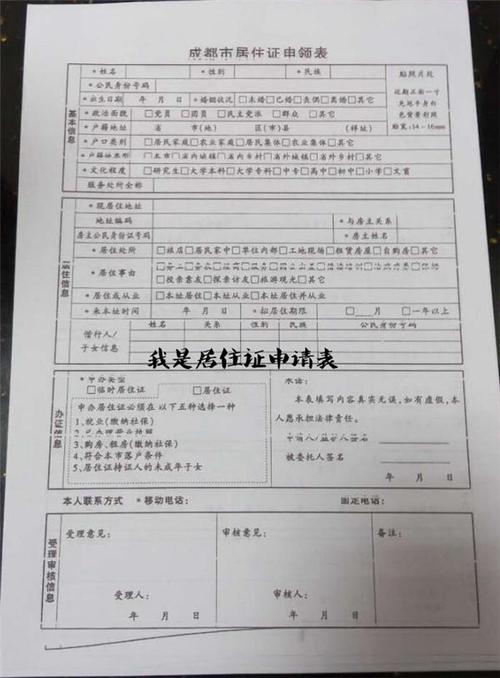 成都市居住证申领表
*姓名 *性别 *民族 贴照片处
*公民身份号码 近期正面一寸
*出生日期 年 月 日 *婚姻状况 □未婚□已婚□丧偶□离婚□其它 免冠半身白
*政治面貌 □党员 □团员 □民主党派 □群众 □其它 色背景彩照
*户籍地址 省 市(地) 区(市)县 (详址)
*户口类别 □居民家庭□农业家庭□居民集体□农业集体□其它
□本市□省内城镇□省内乡村□省外城镇□省外乡村□其它
*文化程度 □研究生□大学本科□大学专科□中专□高中□初中□小学□文盲
服务处所全称
基本信息
*现居住地址
地址编码 *与房主关系
房主公民身份证号码 *房主姓名
*居住处所 □旅店□居民家中□单位内部□工地现场□租赁房屋□自购房□其它
*居住事由
□投亲靠友□探亲访友□旅游观光□其它
*居住或从业 □本址居住□本址从业□本址居住并从业
*来本址时间 年 月 日 *拟居住期限 □ 月 □一年以上
偕行人/子女信息 姓名 关系 性别 民族 公民身份号码
居住信息
我是居住证申请表
*申办类型
□临时居住证 □居住证
申办居住证必须在以下五种选择一种
1、就业(缴纳社保)
3、购房、租房(缴纳社保)
4、符合本市落户条件
5、居住证持证人的未成年子女
办证信息
承诺:
本表填写内容真实无误,如有虚假,本
人愿承担法律责任。
被委托人签名
年 月 日
本人联系方式 *移动电话: 固定电话:
受理审核信息
受理意见: 审核意见: 备注:
受理人: 审核人:
年 月 日 年 月 日